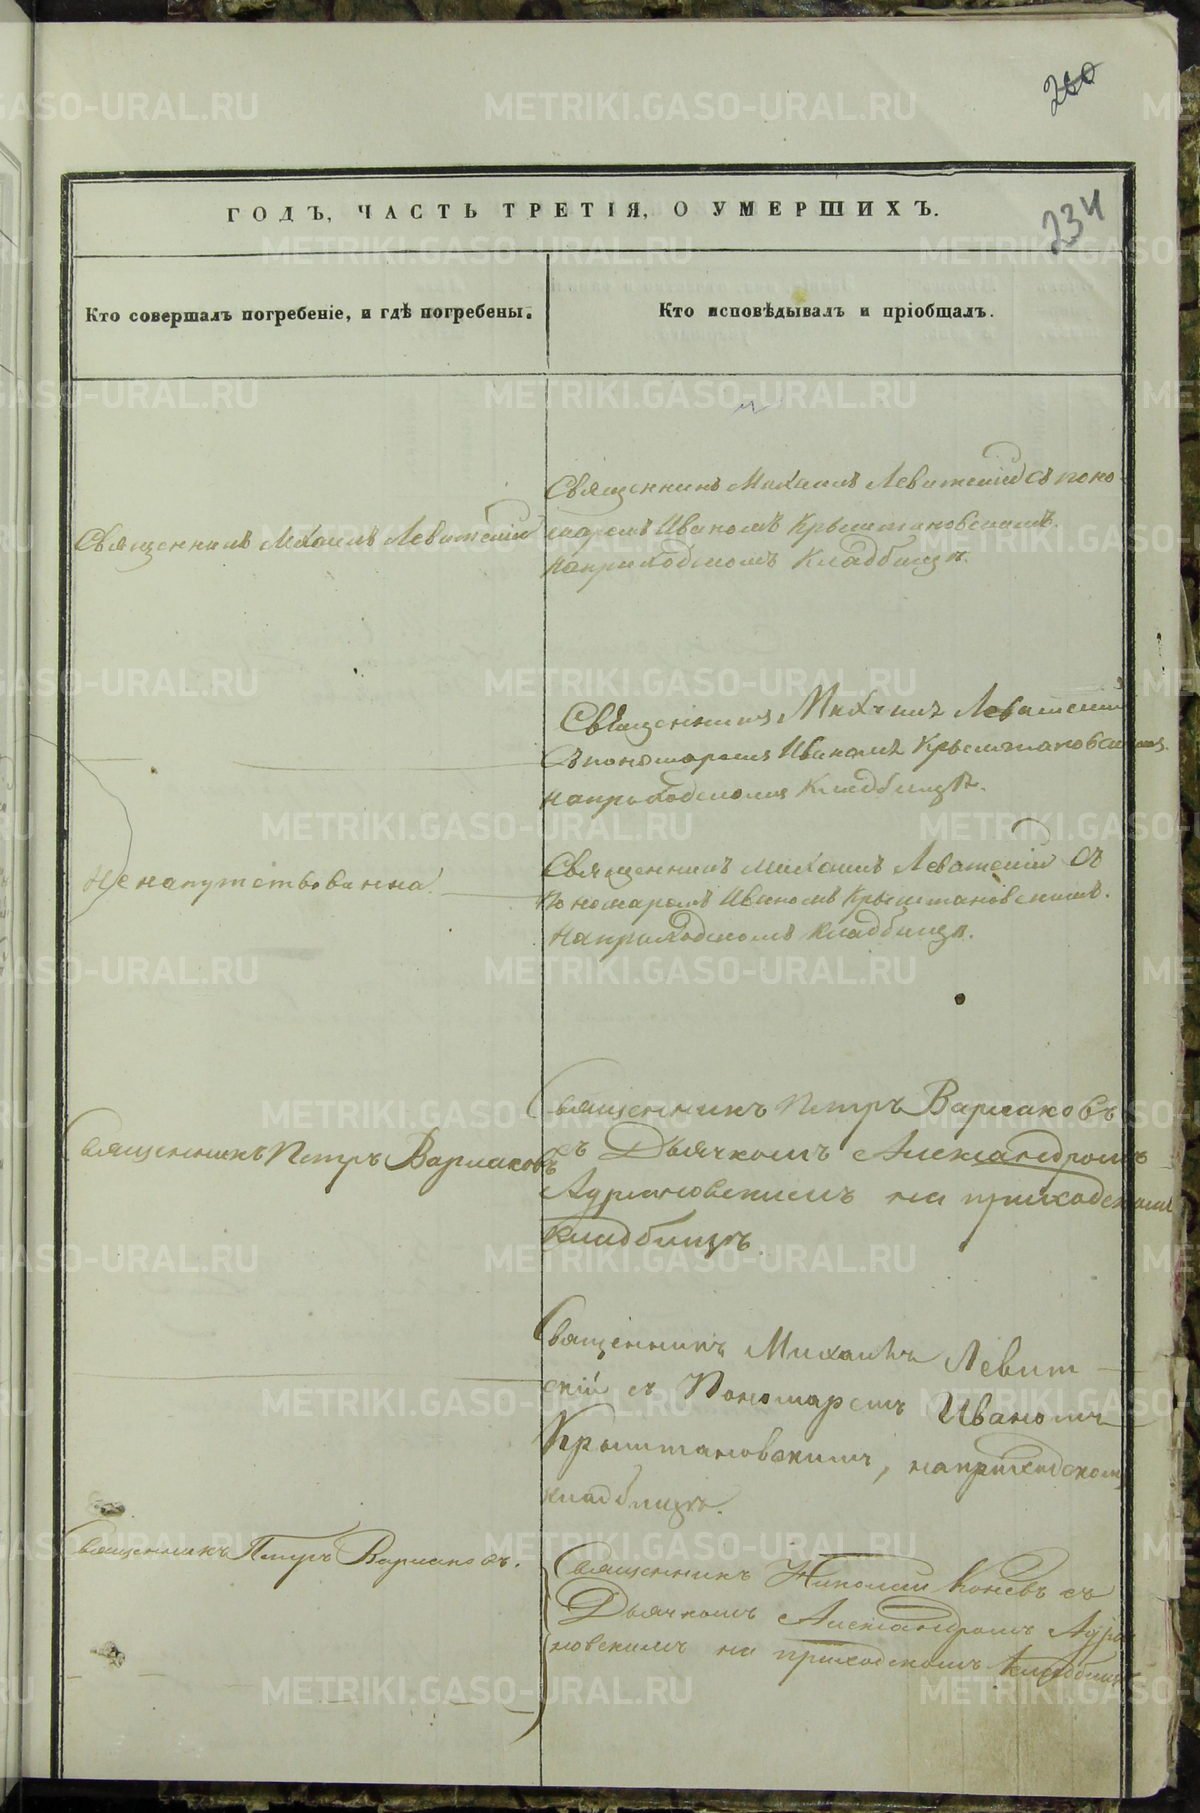 200
234
ГОДЪ, ЧАСТЬ ТРЕТІЯ, О УМЕРШИХЪ.
Кто совершалъ погребеніе, и гдѣ погребены.
Кто исповѣдывалъ и пріобщалъ.
Священникъ Михаилъ Левитскій
Священникъ Михаилъ Левитскій съ поно-
маремъ Иваномъ Крыштановскимъ.
на приходскомъ кладбищѣ.
Священникъ Михаилъ Левитскій
съ пономаремъ Иваномъ Крыштановскимъ.
на приходскомъ кладбищѣ.
Не напутствованна.
Священникъ Михаилъ Левитскій съ
Пономаремъ Иваномъ Крыштановскимъ.
на приходскомъ кладбищѣ.
Священникъ Петръ Варлаковъ
Священникъ Петръ Варлаковъ
съ Дьячкомъ Александромъ
Адріановскимъ на приходскомъ
кладбищѣ.
Священникъ Михаилъ Левит
скій съ Пономаремъ Иваномъ
Крыштановскимъ, на приходском
кладбищѣ.
Священникъ Петръ Варлаковъ.
Священникъ Николай Коневъ съ
Дьячкомъ Александромъ Адріа
новскимъ на приходскомъ кладбищѣ
METRIKI.GASO-URAL.RU